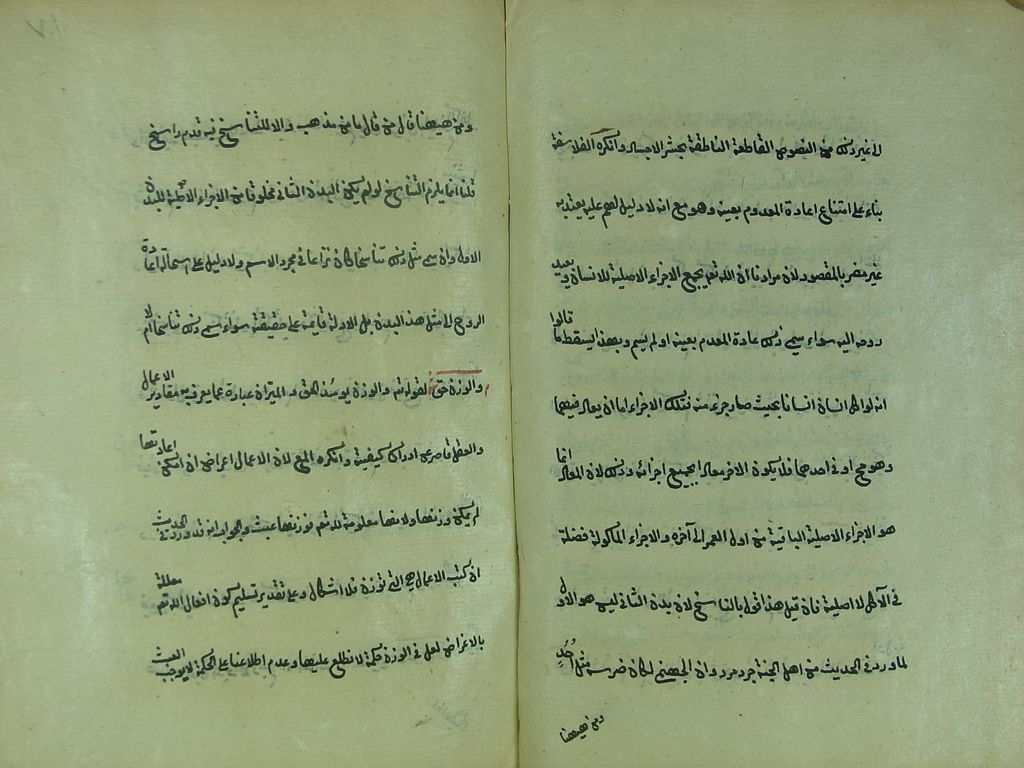 لا غير ذلك من النصوص القاطعة الناطقة بحشر الاجساد وانكره الفلاسفة
بناء على امتناع اعادة المعدوم بعينه وهو مع انه لا دليل لهم عليه يعتد به
غير مضر بالمقصود لان مرادنا ان الله تع يجمع الاجزاء الاصلية للانسان ويعيد
روحه اليه سواء سمي ذلك عادة المعدم بعينه او لم يسم وبهذا يسقط ما قالوا
انه لو اكل انسان انسانا بحيث صار جزء منه فتلك الاجزاء اما ان يعاد فيهما
وهو مح او في احدهما فلا يكون الاخر معادا بجميع اجزائه وذلك لان المعاد انما
هو الاجزاء الاصلية الباقية من اول العمر الى آخره والاجزاء الماكولة فضلة
في الآكل لا اصلية فان قيل هذا قول بالتناسخ لان بدن الثاني ليس هو الاول
لما ورد في الحديث من اهل الجنة جرد مرد وان الجهنمي لمكان ضرسه مثل اُحُدٍ
ومن هيهنا
ومن هيهنا قال من قال ما من مذهب والا للتناسخ فيه قدم راسخ
قلنا انما يلزم التناسخ لو لم يكن البدن الثاني مخلوقا من الاجزاء الاصلية للبدن
الاول وان سمي مثل ذلك تناسخا كان نزاعا في مجرد الاسم ولا دليل على استحالة اعادة
الروح الى مثل هذا البدن بل الادلة قايمة على حقيقته سواء سمي ذلك تناسخا ام لا
والوزن حق لقوله تع والوزن يومئذ الحق والميزان عبارة عما يعرف به مقادير الاعمال
والعقل قاصر عن ادراك كيفيته وانكره المع لان الاعمال اعراض ان امكن اعادتها
لم يكن وزنها ولانها معلومة لله تع فوزنها عبث والجواب انه قد ورد في الحديث
ان كتب الاعمال هي التي توزن فلا اشكال وعلى تقدير تسليم كون افعال الله تع معللة
بالاغراض لعل في الوزن حكمة لا نطلع عليها وعدم اطلاعنا على الحكمة لا يوجب العبث